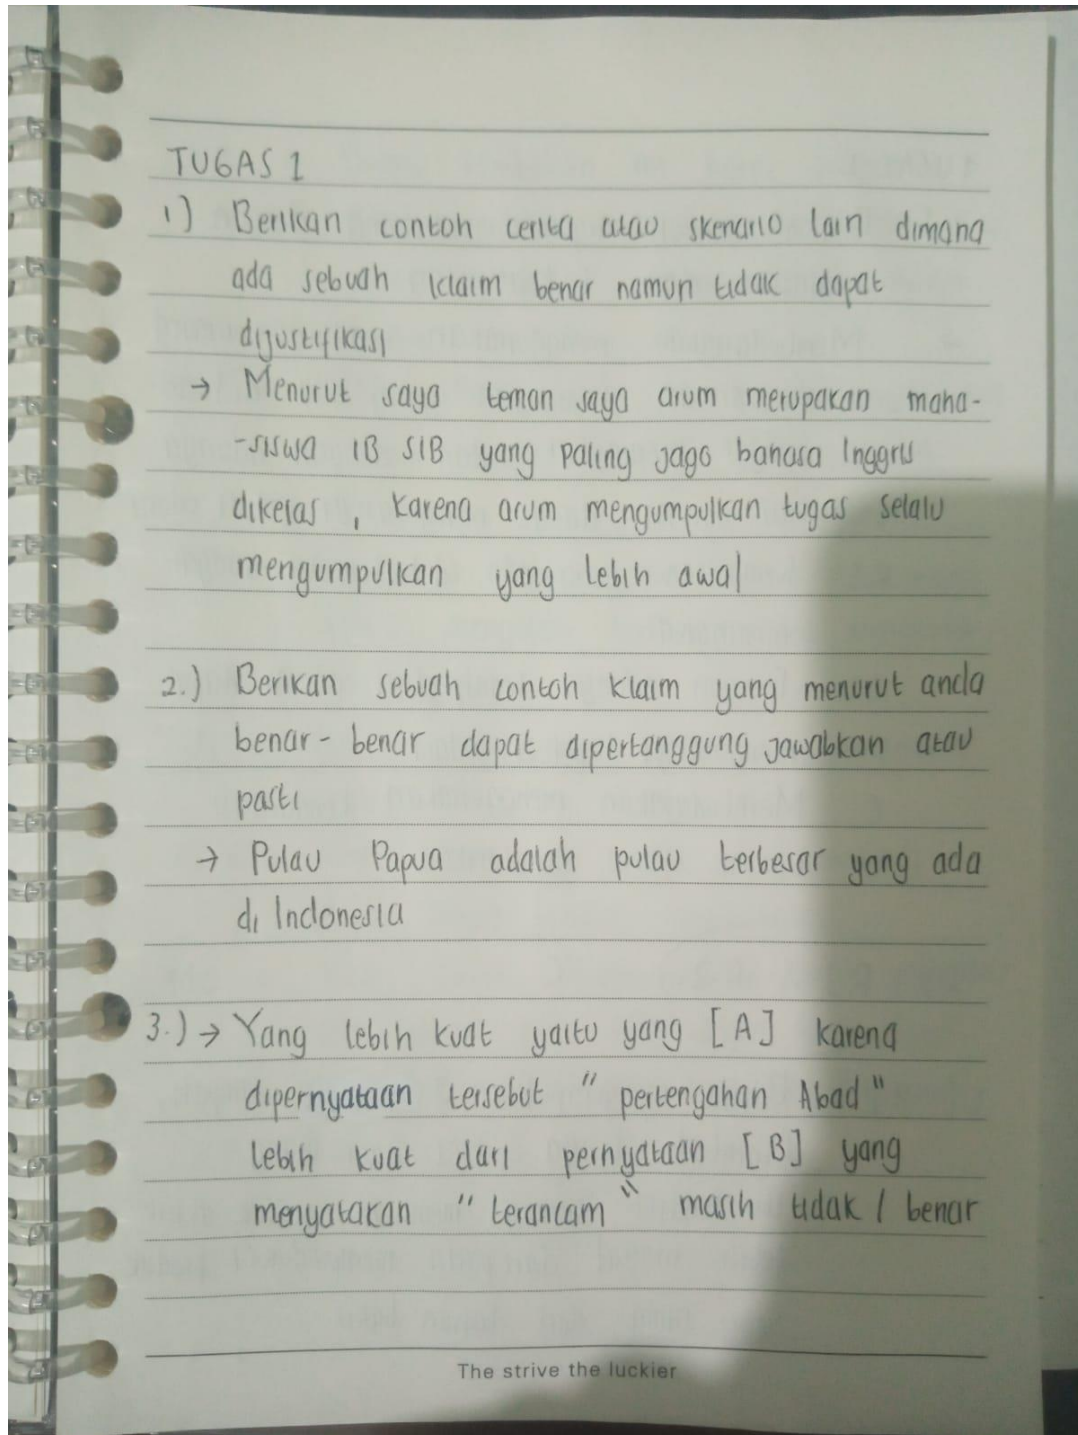 TUGAS 1
1) Berikan contoh cerita atau skenario lain dimana
ada sebuah klaim benar namun tidak dapat
dijustifikasi
→ Menurut saya teman saya arum merupakan maha-
-siswa 1B SIB yang paling jago bahasa Inggris
dikelas, karena arum mengumpulkan tugas selalu
mengumpulkan yang lebih awal
2.) Berikan sebuah contoh klaim yang menurut anda
benar-benar dapat dipertanggung jawabkan atau
pasti
→ Pulau Papua adalah pulau terbesar yang ada
di Indonesia
3.) → Yang lebih kuat yaitu yang [A] karena
dipernyataan tersebut "pertengahan Abad"
lebih kuat dari pernyataan [B] yang
menyatakan "terancam" masih tidak / benar
The strive the luckier